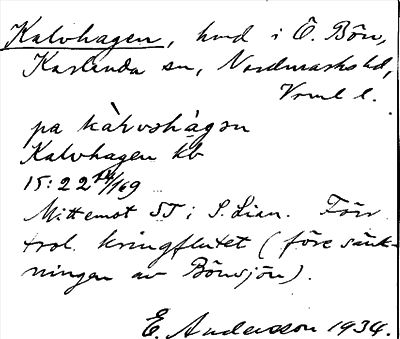 Kalvhagen, hmd i Ö. Bön,
Karlanda sn, Nordmarks hd,
Vrml l.
på kàrvshàgen
Kalvhagen kb
15:22 14/169
Mittemot ST i S. Lian. Förr
trol. kringflutet (före sänk-
ningen av Bönsjön).
E. Andersson 1934.